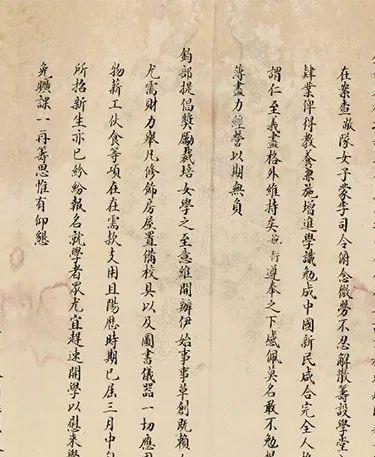 在案查敝隊女子蒙李司令俯念微勞不忍解散籌設學堂
肄業俾得教養兼施增進學識勉成中國新民咸合完全人
謂仁至義盡格外維持矣遵奉之下感佩莫名敢不勉
薄盡力經營以期無負
鈞部提倡獎勵栽培女學之至意維開辦伊始事事草創既賴
尤需財力舉凡修飾房屋置備校具以及圖書儀器一切應
物薪工伙食等項在在需款支用且陽曆時期已屆三月中
所招新生亦已紛紛報名就學者眾尤宜趕速開學以慰來學
免曠課一再籌思惟有仰懇